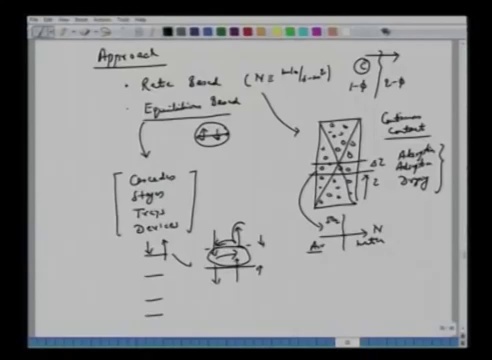 Approach
• Rate Based (N ≡ mole/s-m²)
• Equilibrium Based
Cascades
Stages
Trays
Devices
C
1-ϕ 2-ϕ
Continuous
Contact
Absorption
Adsorption
Drying
ΔZ
Z
N
Air water